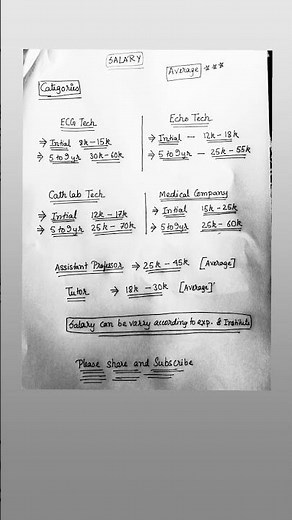 SALARY
Average ***
Categories
ECG Tech
→ Intial 8k-15k
→ 5 to 9 yr 30k-60k
Echo Tech
→ Intial — 12k-18k
→ 5 to 9 yr — 25k-55k
Cath lab Tech
→ Intial 12k-17k
→ 5 to 9 yr 25k-70k
Medical Company
→ Intial 15k-25k
→ 5 to 9 yr 25k-60k
Assistant Profesor → 25k-45k [Average]
Tutor → 18k-30k [Average]
Salary can be varry according to exp. & Institute
Please share and Subscribe